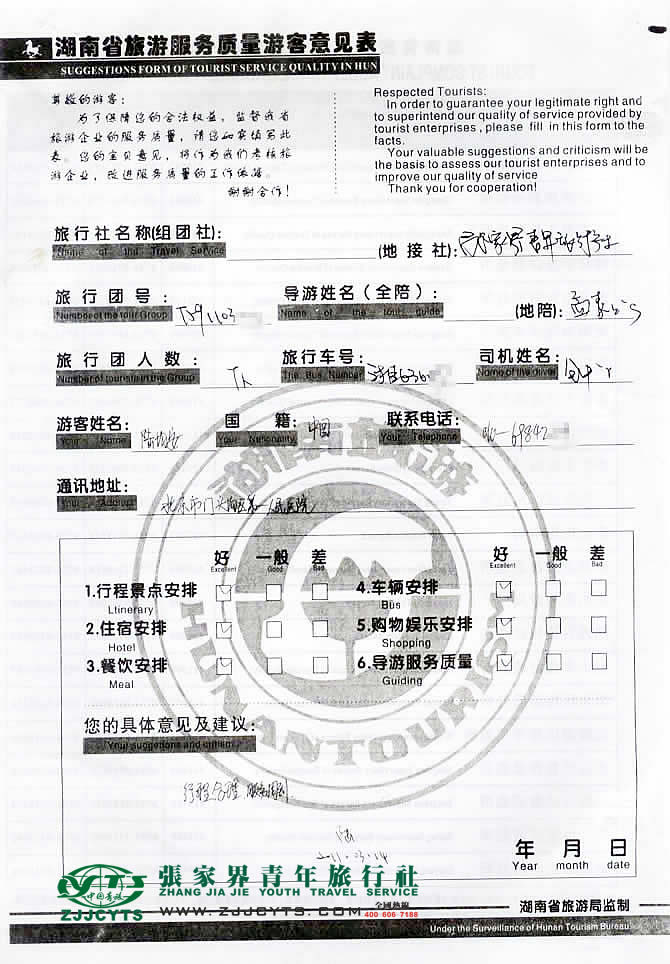 湖南省旅游服务质量游客意见表
SUGGESTIONS FORM OF TOURIST SERVICE QUALITY IN HUN
尊敬的游客:
为了保障您的合法权益,监督我省
旅游企业的服务质量,请您如实填写此
表。您的宝贝意见,将作为我们考核旅
游企业,改进服务质量的工作依据。
谢谢合作!
Respected Tourists:
In order to guarantee your legitimate right and
to superintend our quality of service provided by
tourist enterprises , please fill in this form to the
facts.
Your valuable suggestions and criticism will be
the basis to assess our tourist enterprises and to
improve our quality of service
Thank you for cooperation!
旅行社名称(组团社):
Name of the Travel Service
(地接社):
旅行团号:
Number of the tour Group
导游姓名(全陪):
Name of the tour guide
(地陪):
旅行团人数:
Number of tourists in the Group
旅行车号:
The Bus Number
司机姓名:
Name of the driver
游客姓名:
Your Name
国籍: 中国
Your Nationality
联系电话:
Your Telephone
通讯地址:
Your Adduct
北京市门头沟区 人民医院
好 一般 差
Excellent Good Bad
好 一般 差
Excellent Good Bad
1.行程景点安排
Ltinerary
4.车辆安排
Bus
2.住宿安排
Hotel
5.购物娱乐安排
Shopping
3.餐饮安排
Meal
6.导游服务质量
Guiding
HUNANTOURISM
您的具体意见及建议:
Your suggestions and critism
行程合理 服务周到
陆
2011.03.14
年 月 日
Year month date
中国青旅
ZJJCYTS
張家界青年旅行社
ZHANG JIA JIE YOUTH TRAVEL SERVICE
WWW.ZJJCYTS.COM
全國熱線
400 606 7188
湖南省旅游局监制
Under the Surveillance of Hunan Tourism Bureau